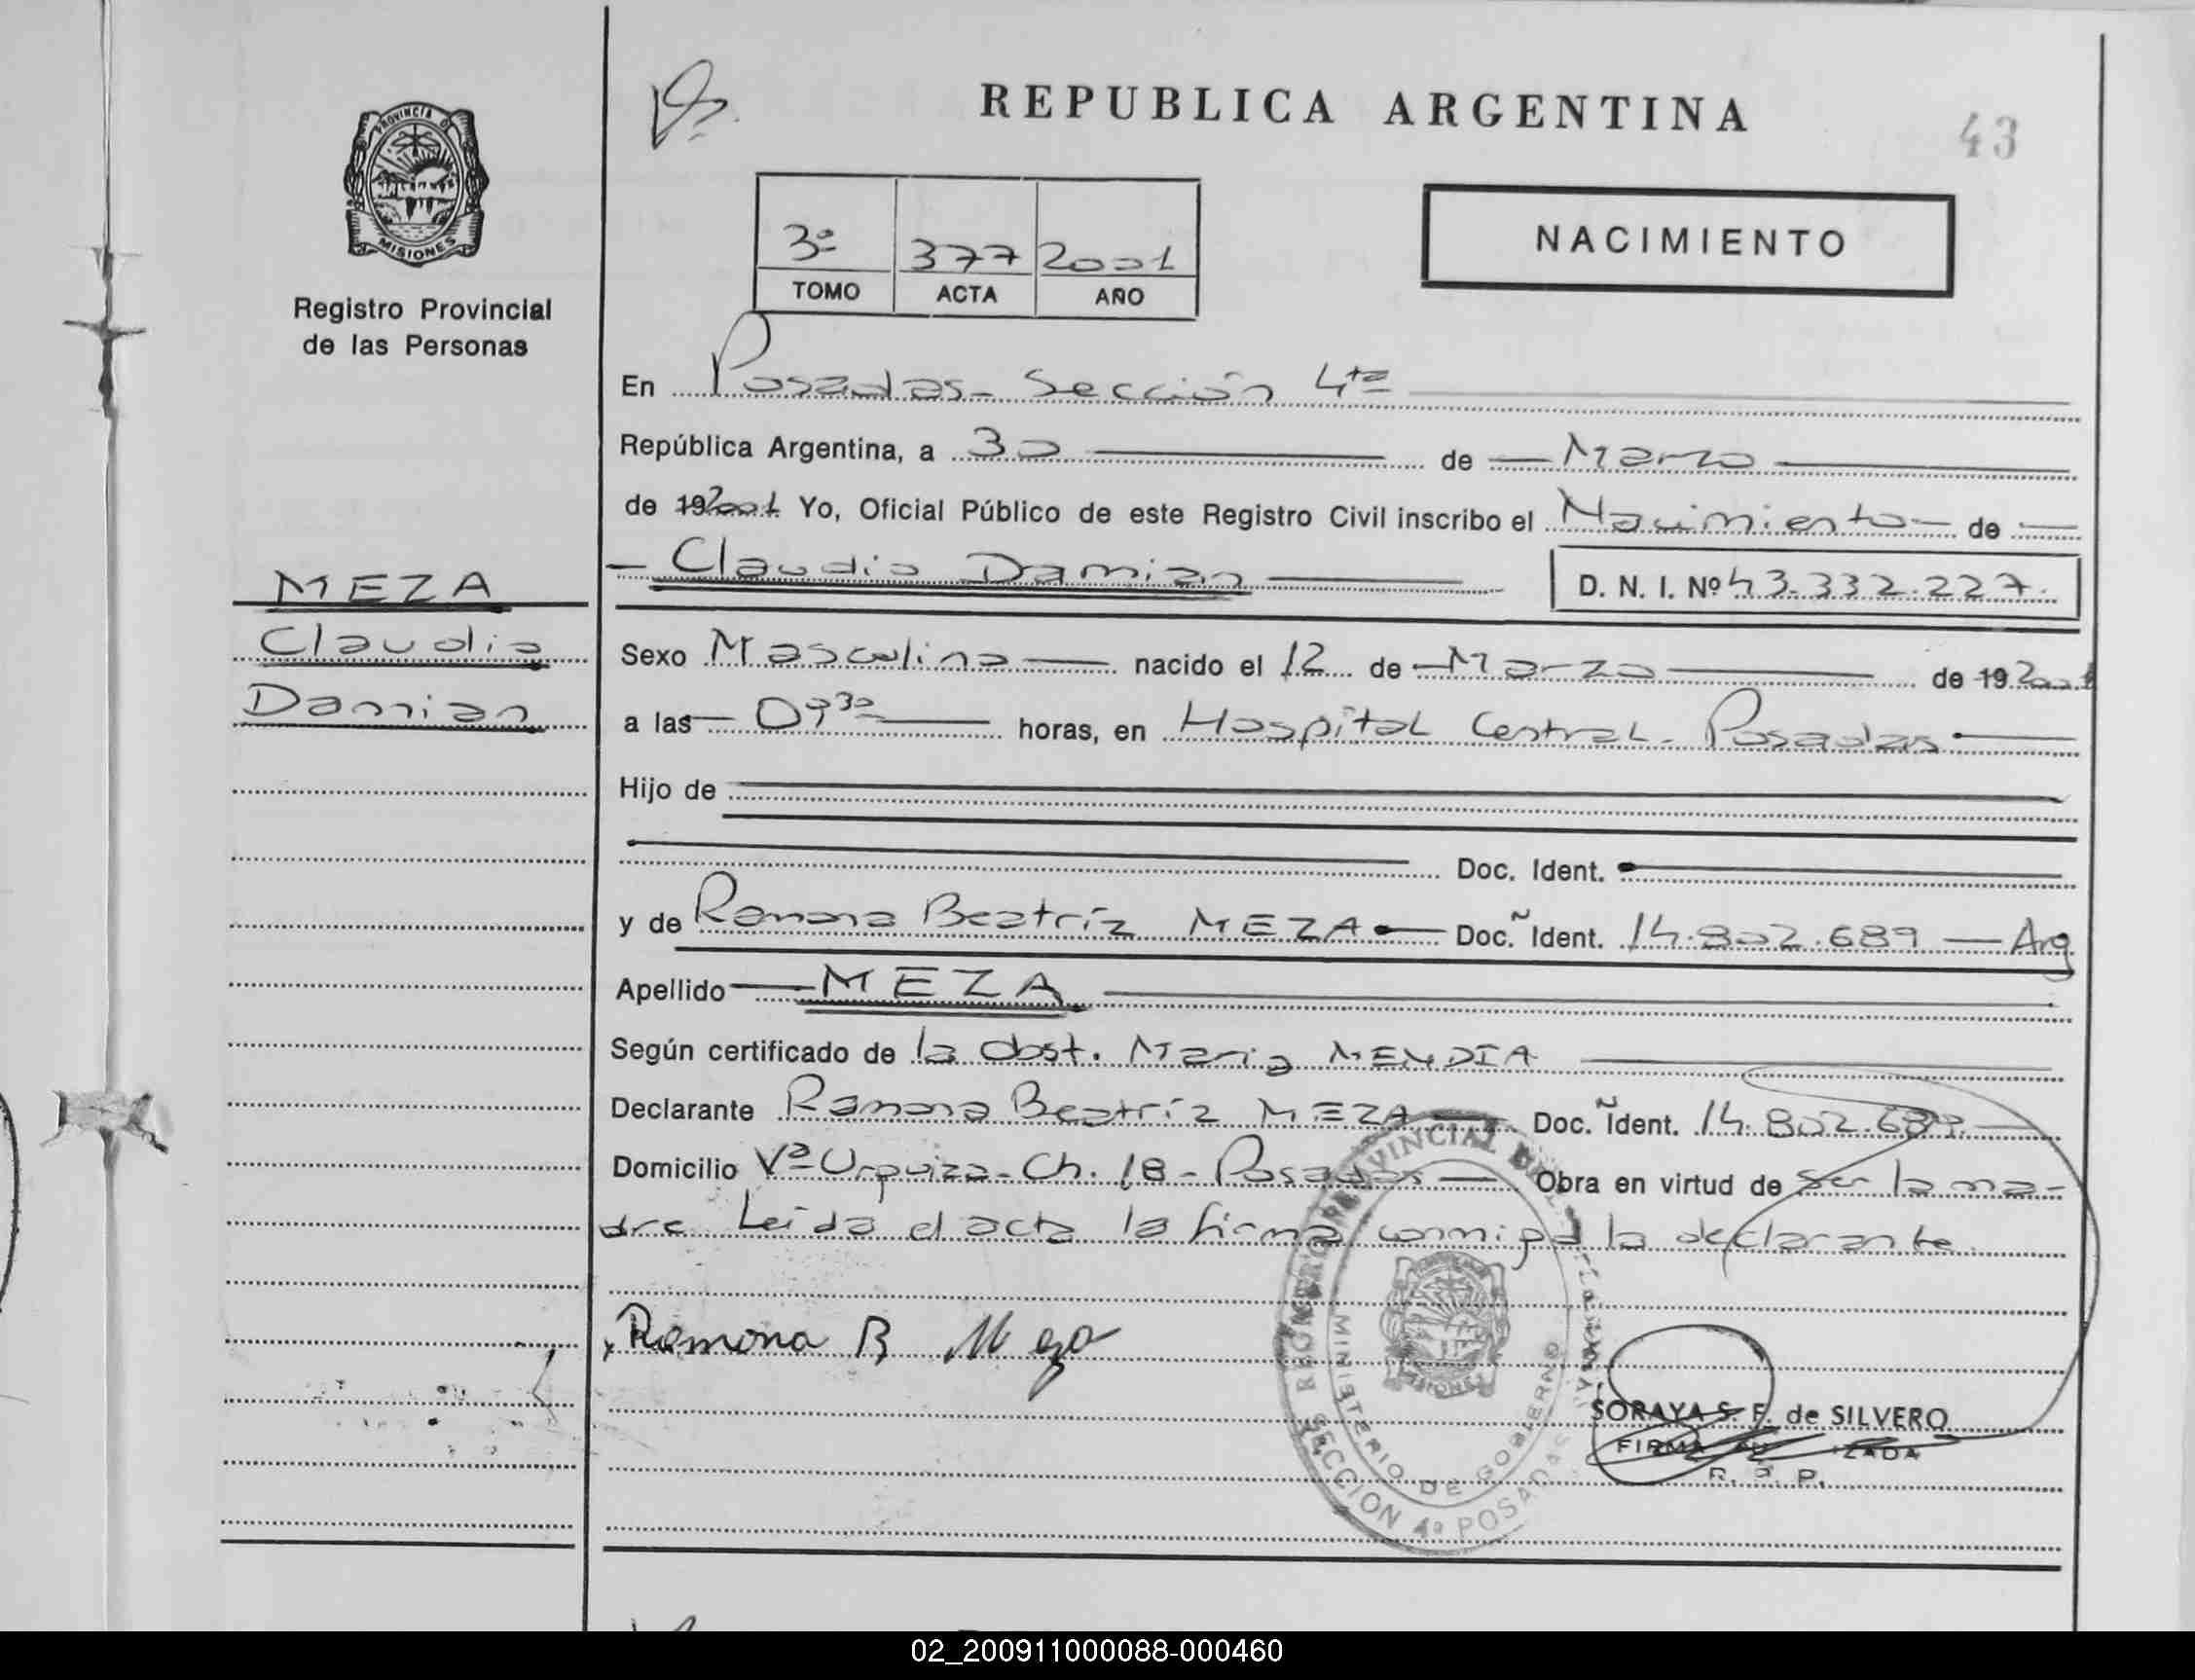 REPUBLICA ARGENTINA
43
PROVINCIA DE
MISIONES
Registro Provincial
de las Personas
3º 377 2001
TOMO ACTA AÑO
NACIMIENTO
En Posadas - Sección 4ta
República Argentina, a 30 de Marzo
de 192001 Yo, Oficial Público de este Registro Civil inscribo el Nacimiento de
Claudio Damian D. N. I. Nº 43.332.227.
MEZA
Claudio
Damian
Sexo Masculino nacido el 12 de Marzo de 19 2001
a las 09 30 horas, en Hospital Central - Posadas
Hijo de
Doc. Ident.
y de Ramona Beatríz MEZA Doc. Ñ Ident. 14.802.689 — Arg
Apellido MEZA
Según certificado de la Obst. Maria MENDIA
Declarante Ramona Beatríz MEZA Doc. Ñ Ident. 14.802.689.
Domicilio Vª Urquiza - Ch. 18 - Posadas Obra en virtud de ser la ma-
dre. Leída el acta la firma conmigo la declarante.
Ramona B Meza
REGISTRO PROVINCIAL DE LAS PERSONAS
MINISTERIO DE GOBIERNO
SECCION 4º POSADAS
SORAYA S. F. de SILVERO
FIRMA AUTORIZADA
R. P. P.
02_200911000088-000460